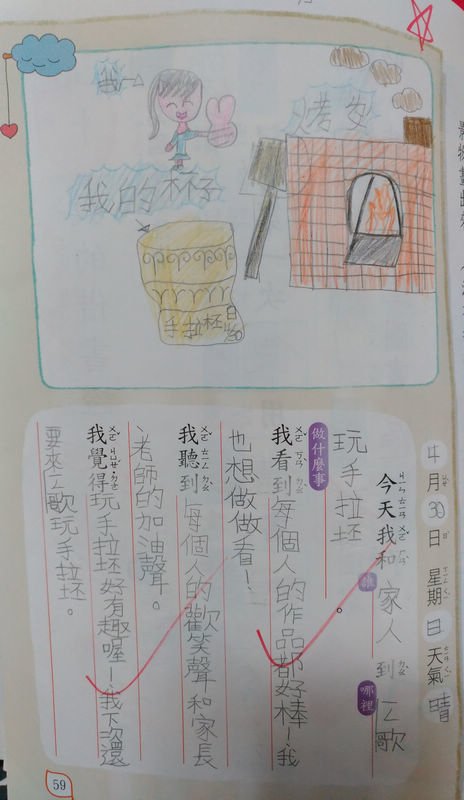 我
烤
我的杯子
手拉坯
4月30日 星期日 天氣晴
今天我和 誰 家人 到 哪裡 ㄧㄥ歌
玩手拉坯。
做什麼事
我看到每個人的作品都好棒！我
也想做做看！
我聽到每個人的歡笑聲和家長
、老師的加油聲。
我覺得玩手拉坯好有趣喔！我下次還
要來ㄧㄥ歌玩手拉坯。
59